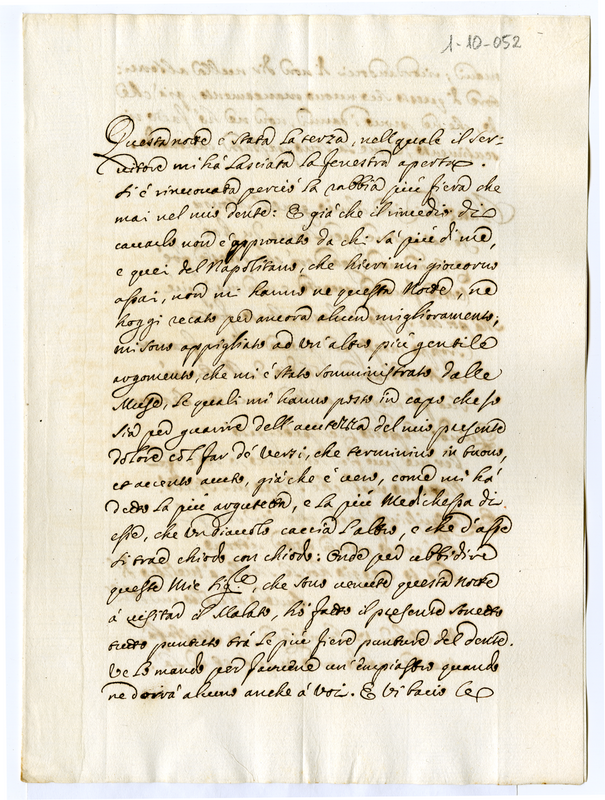 1-10-052
Questa notte è stata la terza, nell quale il ser-
vitore mi hà lasciata la fenestra aperta.
Si è rinnovata perciò la rabbia più fiera che
mai nel mio dente: E già che il rimedio di
cavarlo non è approvato da chi sà più di me,
e quei del Napolitano, che hieri mi giovorno
assai, non mi hanno ne questa Notte, ne
hoggi recato per ancora alcun miglioramento;
mi sono appigliato ad un'altro più gentile
argomento, che mi è stato somministrato dalle
Muse, le quali mi hanno posto in capo che io
sia per guarire dell'acutezza del mio presente
dolore col far de' versi, che terminino in suono,
et accento acuto, già che è vero, come mi hà
detto la più argutetta, e la più Medichessa di
esse, che un diavolo caccia l'altro, e che d'asse
si trae chiodo con chiodo: Onde per ubbidire
queste mie Sig.re, che sono venute questa Notte
à visitar il Malato, hò fatto il presente sonetto
tutto puntuto trà le più fiere punture del dente.
Ve lo mando per farvene un'empiastro quando
ne dorrà alcuno anche à voi. E vi bacio le